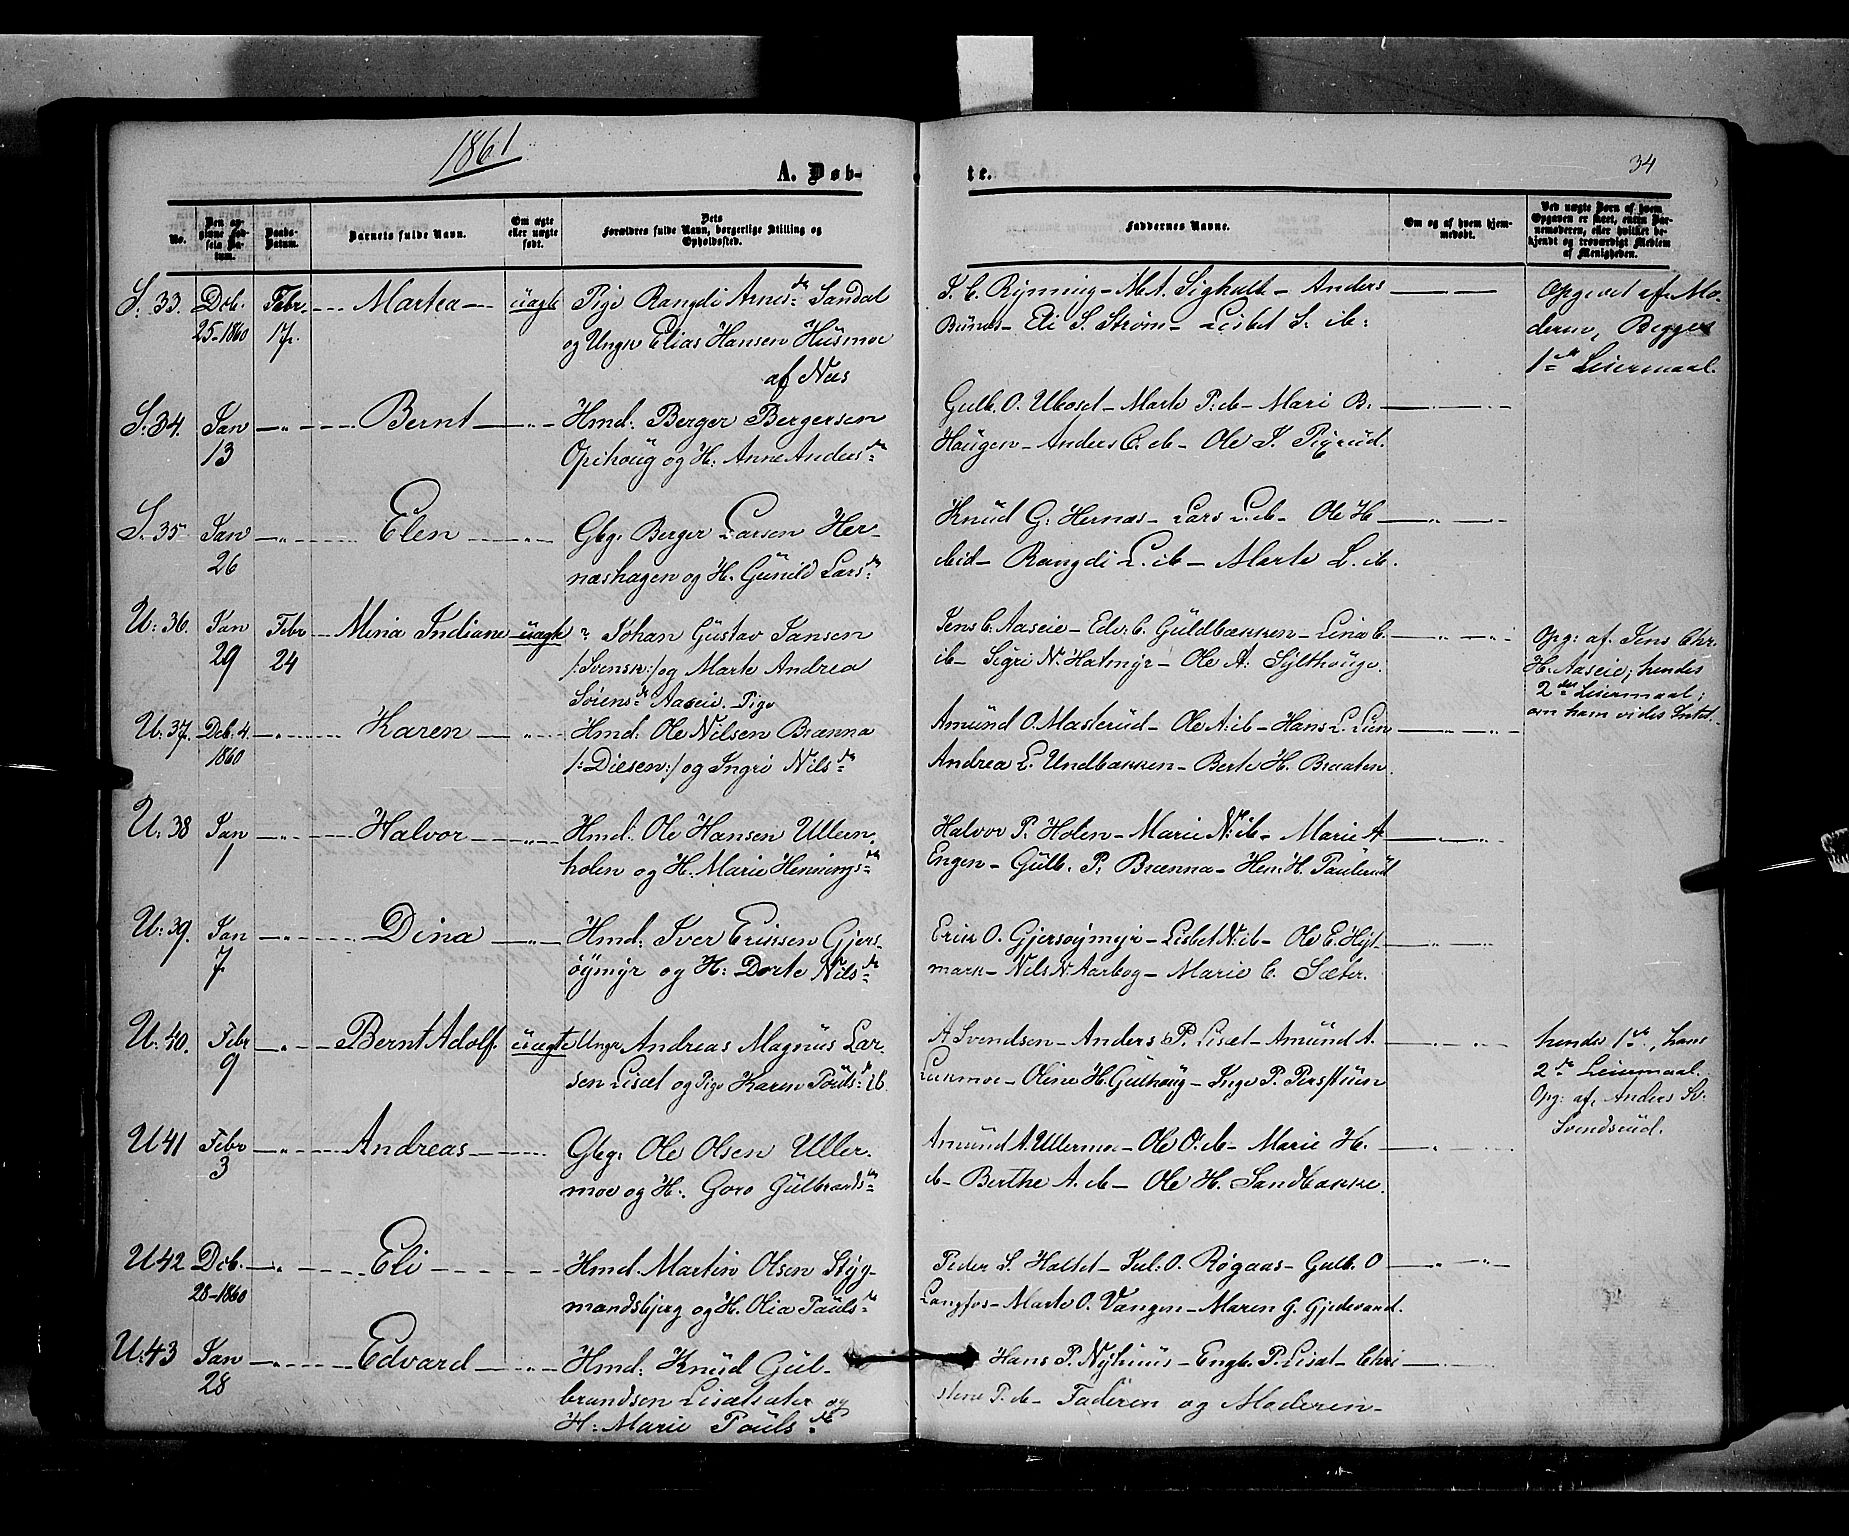 1861
A. Døb-
te.
34
No.
Den an-
givne Fød-
sels Da-
tum.
Daabs-
Datum.
Barnets fulde Navn.
Om ægte
eller uægte
født.
Dets
Forældres fulde Navn, borgerlige Stilling og
Opholdssted.
Faddernes Navne.
Om og af hvem hjem-
medøbt.
Ved uægte Børn af hvem
Opgaven er skeet, enten Bar-
nemoderen, eller hvilket be-
kjendt og troværdigt Medlem
af Menigheden.
S: 33. Dcb. Febr. Martea uægte Pige Rangdi Arnesdr Sandal
25-1860 17. og Ungk Elias Hansen Husmoe
af Næs
J. C. Rynning - Anders
Eli S. Strøm - Lisbet S. ib:
Opgivet af Mo-
deren, Begges
1ste Leiermaal.
S: 34. Jan Bernt Hmd: Berger Bergersen
13 Opihoug og H: Anne Andersdr
Gulb. O. Ulvset - Marte P: ib - Mari B.
Haugen - Anders C. ib - Ole J.
S. 35 Jan Elen Gbg. Berger Larsen Her-
26 næshagen og H. Gunild Larsdr
Knud G: Hernæs - Lars L. ib - Ole H
ibid - Rangdi L. ib - Marte L. ib.
U: 36. Jan Febr Mina Indiane uægte Johan Gustav Jansen
29 24 /:Svensk:/ og Marte Andrea
Sørensdr Aaseie - Pige
Jens C. Aaseie - Edv. C. Guldbakken - Lina C.
ib - Sigri N. Hatmyr - Ole A: Sylthouge.
Opg: af Jens Chr.
H. Aaseie; hendes
2det Leiermaal;
om ham vides Intet.
U: 37. Dcb. 4. Karen Hmd: Ole Nilsen Brænna
1860 /: Diesen:/ og Ingri Nilsdr
Amund O. Masterud - Ole A: ib - Hans L. Lien
Andrea L. Undbakken - Berte H. Braaten.
U: 38 Jan Halvor Hmd: Ole Hansen Ullern-
1 holen og H. Marie Henningsdr
Halvor P: Holen - Marie N: ib - Marie A
Engen - Gulb. P. Brænna - Hen: H. Paulsrud
U: 39. Jan Dina Hmd: Iver Ericksen Gjers-
7 øymyr og H: Dorte Nilsdr
Erik O. Gjersøymyr - Lisbet N: ib - Ole E. Hyt
mark - Nils N. Aarbog - Marie C. Sæter.
U: 40. Febr Bernt Adolf. uægte Ungk Andreas Magnus Lar-
9 sen Liset og Pige Karen Poulsdr ib.
A Svendsen - Anders P. Liset - Amund A.
Lukmoe - Oline H. Gulhoug - Inge P. Perstuen
hendes 1ste, hans
2det Leiermaal.
Opg: af Anders Sv.
Svendsrud.
U 41 Febr Andreas Gbg. Ole Olsen Uller-
3 moe og H. Goro Gulbrandsdr
Amund A. Ullermoe - Ole O. ib - Marie H.
ib - Berthe A. ib - Ole H. Sandbakke.
U 42 Dcb. Eli Hmd. Martin Olsen Styg-
28-1860 mandsbjerg og H. Olia Paulsdr
Peder S. Holtet - Jul. O. Røgaas - Gulb. O
Langfos - Marte O. Vangen - Maren G. Gjedevand.
U: 43 Jan Edvard Hmd: Knud Gul-
28 brandsen Lisetsæter og
H: Marie Poulsdr
Hans P. Nyhuus - Engb. P. Liset - Chri
stene P. ib - Faderen og Moderen -